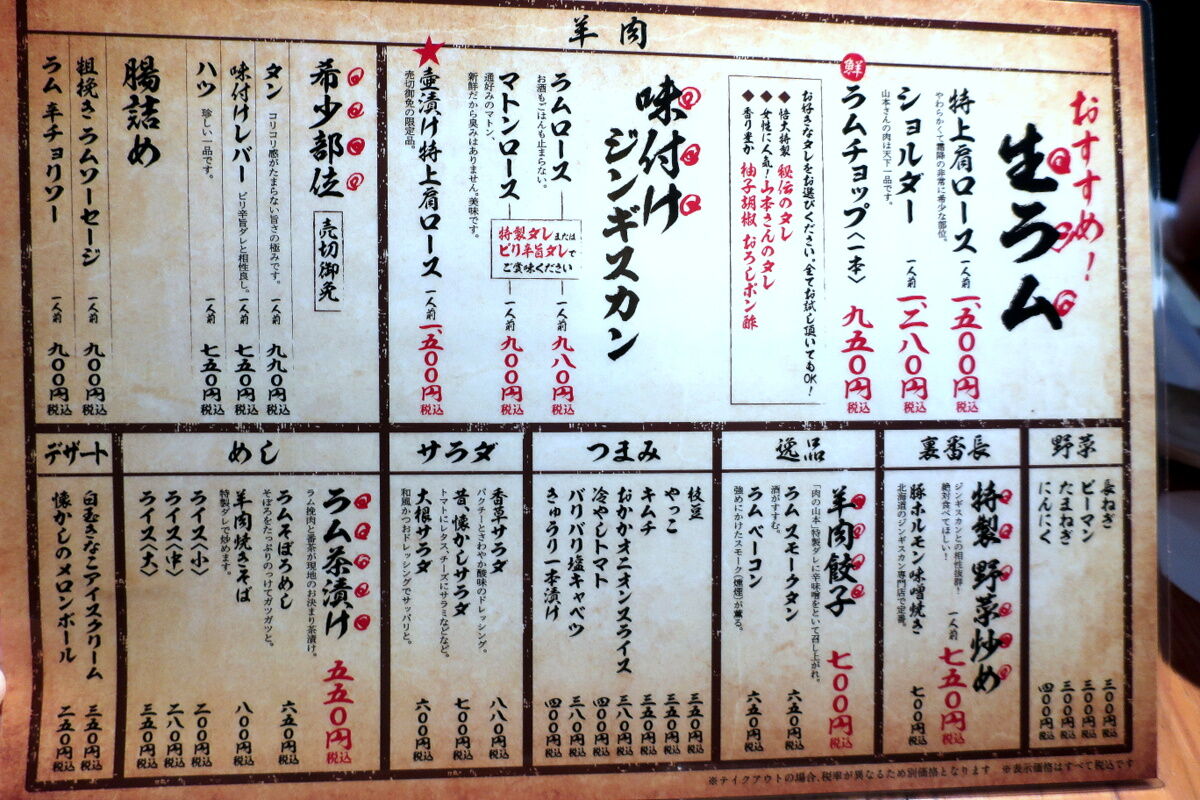 羊肉
おすすめ!
生ラム
特上肩ロース 一人前 一、五〇〇円 税込
やわらかくて霜降の非常に希少な部位。
ショルダー 一人前 一、二八〇円 税込
山本さんの肉は天下一品です。
鮮
ラムチョップ〈一本〉 九五〇円 税込
お好きなタレをお選びください。全てお試し頂いてもOK!
◆悟大特製 秘伝のタレ
◆女性に人気!山本さんのタレ
◆香り豊か 柚子胡椒 おろしポン酢
味付け
ジンギスカン
ラムロース 一人前 九八〇円 税込
お酒もごはんも止まらない。
マトンロース 一人前 九〇〇円 税込
通好みのマトン、
新鮮だから臭みはありません。美味です。
特製タレまたは
ピリ辛旨タレで
ご賞味ください
壺漬け特上肩ロース 一人前 一、五〇〇円 税込
売切御免の限定品。
希少部位
売切御免
タン コリコリ感がたまらない旨さの極みです。 一人前 九九〇円 税込
味付けレバー ピリ辛旨ダレと相性良し。 一人前 七五〇円 税込
ハツ 珍しい一品です。 一人前 七五〇円 税込
腸詰め
粗挽きラムソーセージ 一人前 九〇〇円 税込
ラム辛チョリソー 一人前 九〇〇円 税込
野菜
長ねぎ 三〇〇円 税込
ピーマン 三〇〇円 税込
たまねぎ 三〇〇円 税込
にんにく 四〇〇円 税込
裏番長
特製 野菜炒め 一人前 七五〇円 税込
ジンギスカンとの相性抜群!
絶対食べてほしい!
豚ホルモン味噌焼き 七〇〇円 税込
北海道のジンギスカン専門店で定番。
逸品
羊肉餃子 七〇〇円 税込
「肉の山本」特製ダレに辛味噌をといて召し上がれ。
ラムスモークタン 六五〇円 税込
酒がすすむ。
ラムベーコン 六五〇円 税込
強めにかけたスモーク(燻煙)が薫る。
つまみ
枝豆 三五〇円 税込
やっこ 三五〇円 税込
キムチ 三五〇円 税込
おかかオニオンスライス 三八〇円 税込
冷やしトマト 四〇〇円 税込
バリバリ塩キャベツ 三八〇円 税込
きゅうり一本漬け 四〇〇円 税込
サラダ
香草サラダ 八八〇円 税込
パクチーとさわやか酸味のドレッシング。
昔、懐かしサラダ 七〇〇円 税込
トマトにレタス、チーズにサラミなどなど。
大根サラダ 六〇〇円 税込
和風かつお丼ドレッシングでサッパリと。
めし
ラム茶漬け 五五〇円 税込
ラム挽肉と番茶が現地のお決まり茶漬け。
ラムそぼろめし 六五〇円 税込
そぼろをたっぷりのっけてガツガツと。
羊肉焼きそば 八〇〇円 税込
特製ダレで炒めます。
ライス〈小〉 二〇〇円 税込
ライス〈中〉 二八〇円 税込
ライス〈大〉 三五〇円 税込
デザート
白玉きなこアイスクリーム 三五〇円 税込
懐かしのメロンボール 二五〇円 税込
※テイクアウトの場合、税率が異なるため別価格となります。 ※表示価格はすべて税込です